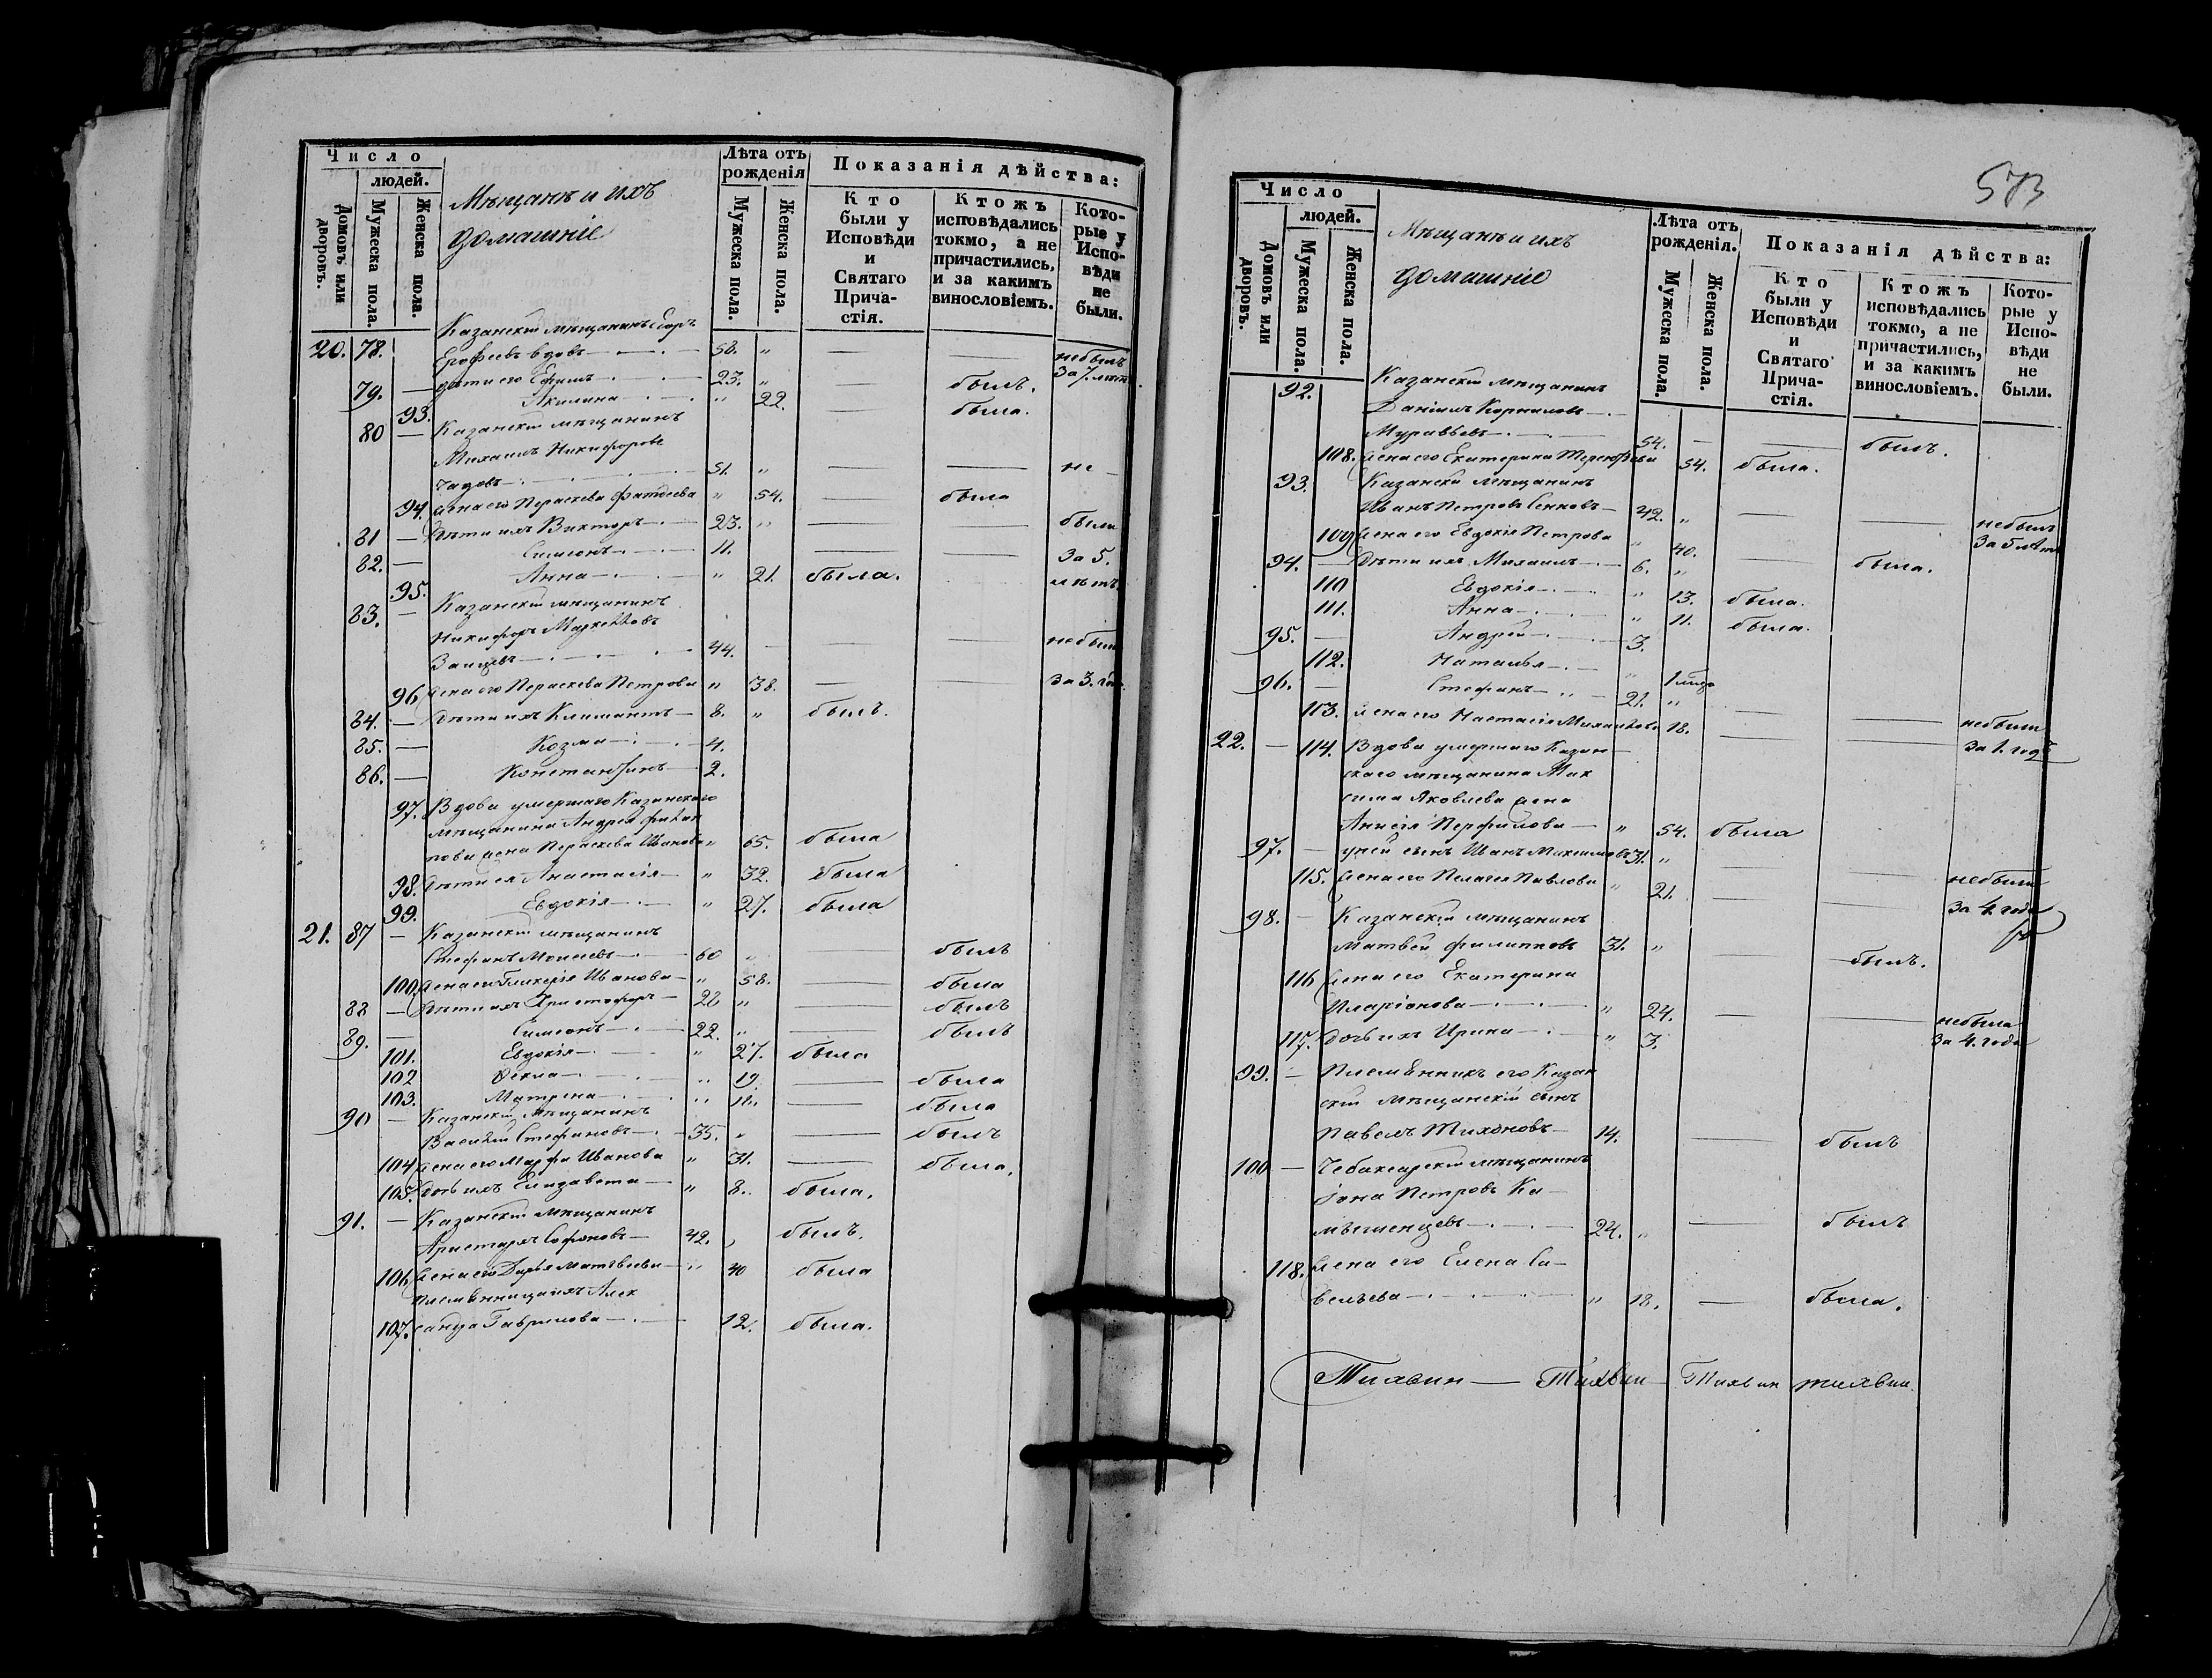 Число
людей.
Домовъ или дворовъ.
Мужеска пола.
Женска пола.
Мѣщанъ и ихъ
домашніе
Лѣта отъ рожденія
Мужеска пола.
Женска пола.
Показанія дѣйства:
Кто были у Исповѣди и Святаго Прича-стія.
Ктожъ исповѣдались токмо, а не причастились, и за какимъ винословіемъ.
Кото-рые у Испо-вѣди не были.
Казанскій мѣщанинъ Егоръ
20. 78. Ерофеевъ вдовъ 58. " — — небылъ
79. — дѣти его Ефимъ 23. " былъ. За 7. лѣтъ
93. Акилина " 22. — была.
80 — Казанскій мѣщанинъ
Михаилъ Никифоровъ
51. " — — не
94. жена его Параскева Фатдеева " 54. — была
81 — Дѣти ихъ Викторъ 23. " — — были
82. — Симеонъ 11. — — За 5.
95. Анна " 21. была. лѣтъ.
83. — Казанскій мѣщанинъ
Никифоръ
Заицевъ 44. — — — небыли
96 жена его Параскева Петрова " 38. — — за 3. года
84. — Дѣти ихъ Климентъ 8. " былъ.
85. — Козма 4.
86. — Константинъ 2.
97. Вдова умершаго Казанскаго
мѣщанина Андрея Филип
пова жена Параскева Иванова " 65. была
98. Дѣти ея Анастасія " 32. была
99. Евдокія " 27. была
21. 87 — Казанскій мѣщанинъ
Стефанъ Моисеевъ 60 " — былъ
100. жена его Гликерія Иванова " 58. — была
88 — Дѣти ихъ Христофоръ 28 " — былъ
89. — Симеонъ 22. " — былъ
101. Евдокія " 27. была
102 Фекла " 19. — была
103. Матрена " 11. — была
90 — Казанскій мѣщанинъ
Василій Стефановъ 35. " — былъ
104 жена его Марфа Иванова " 31. — была.
105. Дочь ихъ Елизавета " 8. была.
91. — Казанскій мѣщанинъ
Аристархъ Софоновъ 42. былъ.
106 жена его Дарья Матвѣева " 40 была
племянница ихъ Алек
107. санда Гаврилова 12. была.
573
Число
людей.
Домовъ или дворовъ.
Мужеска пола.
Женска пола.
Мѣщанъ и ихъ
домашніе
Лѣта отъ рожденія.
Мужеска пола.
Женска пола.
Показанія дѣйства:
Кто были у Исповѣди и Святаго Прича-стія.
Ктожъ исповѣдались токмо, а не причастились, и за какимъ винословіемъ.
Кото-рые у Испо-вѣди не были.
92. Казанскій мѣщанинъ
Даніилъ Корниловъ
Муравьевъ 54. — — былъ.
108. жена его Екатерина 54. была.
93. Казанскій мѣщанинъ
Иванъ Петровъ Сенковъ 42. " — — небылъ
109 жена его Евдокія Петрова " 40. — была. За 5 лѣтъ
94. — Дѣти ихъ Михаилъ 6. "
110 Евдокія " 13. была.
111. Анна " 11. была.
95. — Андрей 3.
112. Наталья " 1 мѣся
96. — Стефанъ 21. "
113. жена его Настасія Михайлова 18. — — небыли
22. — 114. Вдова умершаго Казан — — за 1. годъ
скаго мѣщанина Мак
сима Яковлева жена
Анисія Перфилова " 54. была
97. — у ней сынъ Иванъ Максимовъ 31. " —
115. жена его Пелагея Павлова " 21. — — небыли
98. — Казанскій мѣщанинъ За 4. года
Матвей Филипповъ 31. " — былъ.
116 жена его Екатерина
Иларіонова " 24. — — небыла
117. дочь ихъ Ирина " 3. За 4. года
99. — Племянникъ его Казан
скій мѣщанскій сынъ
Павелъ Тихоновъ 14. — былъ
100 — Чебаксарскій мѣщанинъ
Іона Петровъ Ка-
мышенцевъ 24. " — былъ
118. жена его Елена Са-
вельева " 18. — была.
Тихвин — Тихвин — Тихвин Тихвин